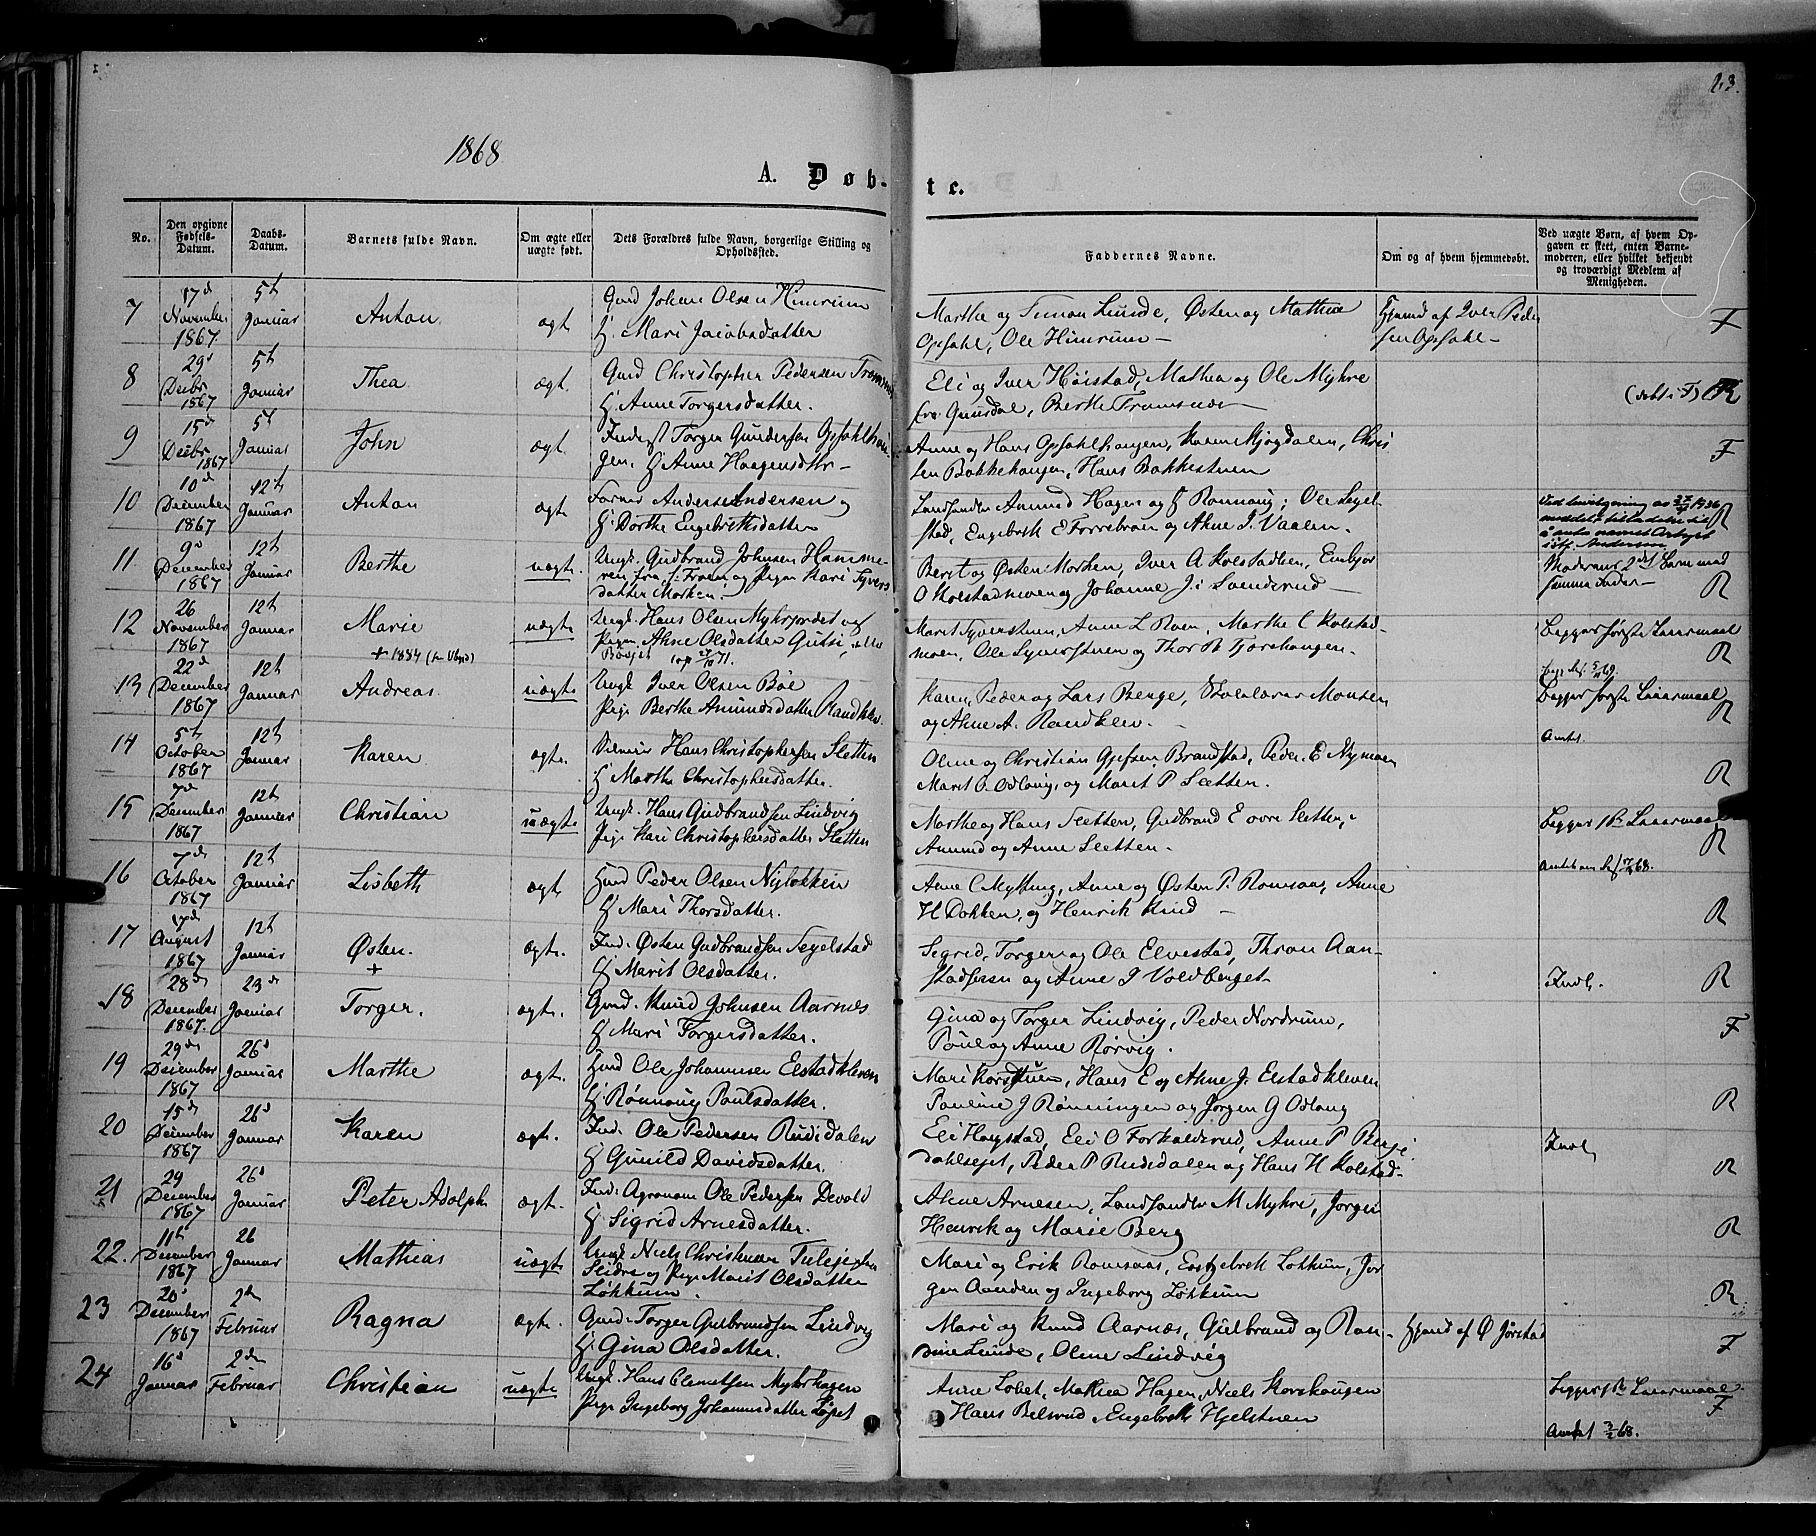 1868
23.
A. Døb-
te.
No.
Den opgivne Fødsels-Datum.
Daabs-Datum.
Barnets fulde Navn.
Om ægte eller uægte født.
Dets Forældres fulde Navn, borgerlige Stilling og Opholdssted.
Faddernes Navne.
Om og af hvem hjemmedøbt.
Ved uægte Børn, af hvem Op-
gaven er skeet, enten Barne-
moderen, eller hvilket bekjendt
og troværdigt Medlem af
Menigheden.
7 17d November 1867 5t Januar Anton ægt. Gmd Johan Olsen Himrum
H. Mari Jacobsdatter
Marthe og Simon Lunde, Østen og Mathea
Opsahl, Ole Himrum —
Hjemd af Iver Peder
sen Opsahl — F
8 29d Decbr 1867 5t Januar Thea ægt. Gmd Christopher Pedersen Tromsnæs
H. Anne Torgersdatter.
Eli og Iver Høistad, Mathea og Ole Myhre
fra Gausdal, Berthe Tromsnæs
(døbt i F) R
9 15d Decbr 1867 5t Januar John ægt. Inderst Torger Gundersen Opsahlhau
gen, H Anne Haagensdtr —
Anne og Hans Opsahlhaugen, Karen Mjogdalen, Chris
ten Bakkehaugen, Hans Bakkestuen F
10 10d December 1867 12t Januar Anton ægt Farver Anders Andersen og
H. Dorthe Engebrethsdatter
Landhandler Amund Hagen og H Rønnoug; Ole Segel-
stad, Engebreth E Forrebraen og Ahne J. Vaalen.
Ved bevilgning av 27/4 1936
meddelt tilladelse til
å anta navnet
istf. Andersen R
11 9d December 1867 12t Januar Berthe uægt. Ungk. Gudbrand Johnsen Hamme-
ren fra F: Froen og Pigen Kari Syvers
datter Morken.
Berit og Østen Morken, Iver A Kolstadlien, Embjør
O Kolstadmoen og Johanne J. i Svenderud —
Moderens 2det Barn med
samme Fader — R
12 26 November 1867 12t Januar Marie uægte Ungk. Hans Olsen Myhrjordet og
Pigen Ahne Olsdatter
Marit Syverstuen, Anne L Roen, Marthe C Kolstad-
moen, Ole Syverstuen og Thor
Begges første Leiermaal R
+ 1884
13 22d December 1867 12t Januar Andreas uægte Ungk Iver Olsen Bøe
Pige Berthe Amundsdatter Randklev
Karen, Peder og Lars Berge, Skolelærer Monsen
og Ahne A. Randklev. —
Begges første Leiermaal R
Anmt.
14 5t October 1867 12t Januar Karen ægte. Hans Christophersen Sletten
H Marthe Christophersdatter.
Oline og Christian Gjefsen Brandstad, Peder E Nymoen
Marit O. Odloug, og Marit P Sletten. R
15 7d December 1867 12t Januar Christian uægte Ungk. Hans Gudbrandsen Lindvig
Pige Kari Christophersdatter Sletten
Marthe og Hans Sletten, Gudbrand E øvre Sletten,
Amund og Anne Sletten —
Begges 1ste Leiermaal R
16 7d October 1867 12t Januar Lisbeth ægt Hmd Peder Olsen Nyløkken
H Mari Thorsdatter.
Anne C Mytting, Anne og Østen P. Romsaas, Anne
H Dokken, og Henrik Knud — R
17 17d August 1867 12t Januar Østen. + ægte. Ind. Østen Gudbrandsen Segelstad
H Marit Olsdatter.
Sigrid, Torger og Ole Elvestad, Thron Aan-
stadsveen og Anne J Voldberget
Indl. R
18 28de December 1867. 23de Januar Torger. ægte. Gmd. Knud Johnsen Aarnes
H Mari Torgersdatter.
Gina og Torger Lindvig, Peder Nordrum,
Poul og Anne Rørvig. F
19 29de December 1867 26d Januar Marthe ægt. Hmd Ole Johannesen Elstadkleven
H. Rønnoug Poulsdatter.
Mari Korsstuen, Hans E og Ahne J. Elstadkleven
Pauline J Rønningen og Jørgen G Odloug R
20 15de December 1867 26d Januar Karen ægt. Ind. Ole Pedersen Rudidalen
H Gunild Davidsdatter.
Eli Haystad, Eli O Forkalsrud, Anne P Berge
dahlseget, Peder P Rudidalen og Hans H Kolstad-
Indl R
21 29 December 1867 26d Januar Peter Adolph ægt. Ind. Agronom Ole Pedersen Devold
H. Sigrid Arnesdatter.
Ahne Arnesen, Landhandler M Myhre, Jørgen
Henrik og Marie Berg R
22. 11te December 1867 26 Januar Mathias uægte Ungk Niels Christensen
Slidre og Pige Marit Olsdatter
Løkkum.
Mari og Erik Romsaas, Engebreth Løkkum, Jør
gen Aanden og Ingeborg Løkkum R
23 20d December 1867 2den Februar Ragna ægte. Gmd. Torger Gulbrandsen Lindvig
H. Gina Olsdatter.
Mari og Knud Aarnæs, Gulbrand og Ran-
dine Lunde, Oline Lindvig
Hjemd af Ø Jørstad F
24 16d Januar 2den Februar Christian uægte Ungk. Hans Clemetsen Myhrhagen
Pige Ingeborg Johannesdatter Løpet
Anne Løbet, Mathea Hagen, Niels Korshaugen
Hans Belsrud, Engebreth Hjelstuen
Begges 1ste Leiermaal. F
Anmt 3/2 68.